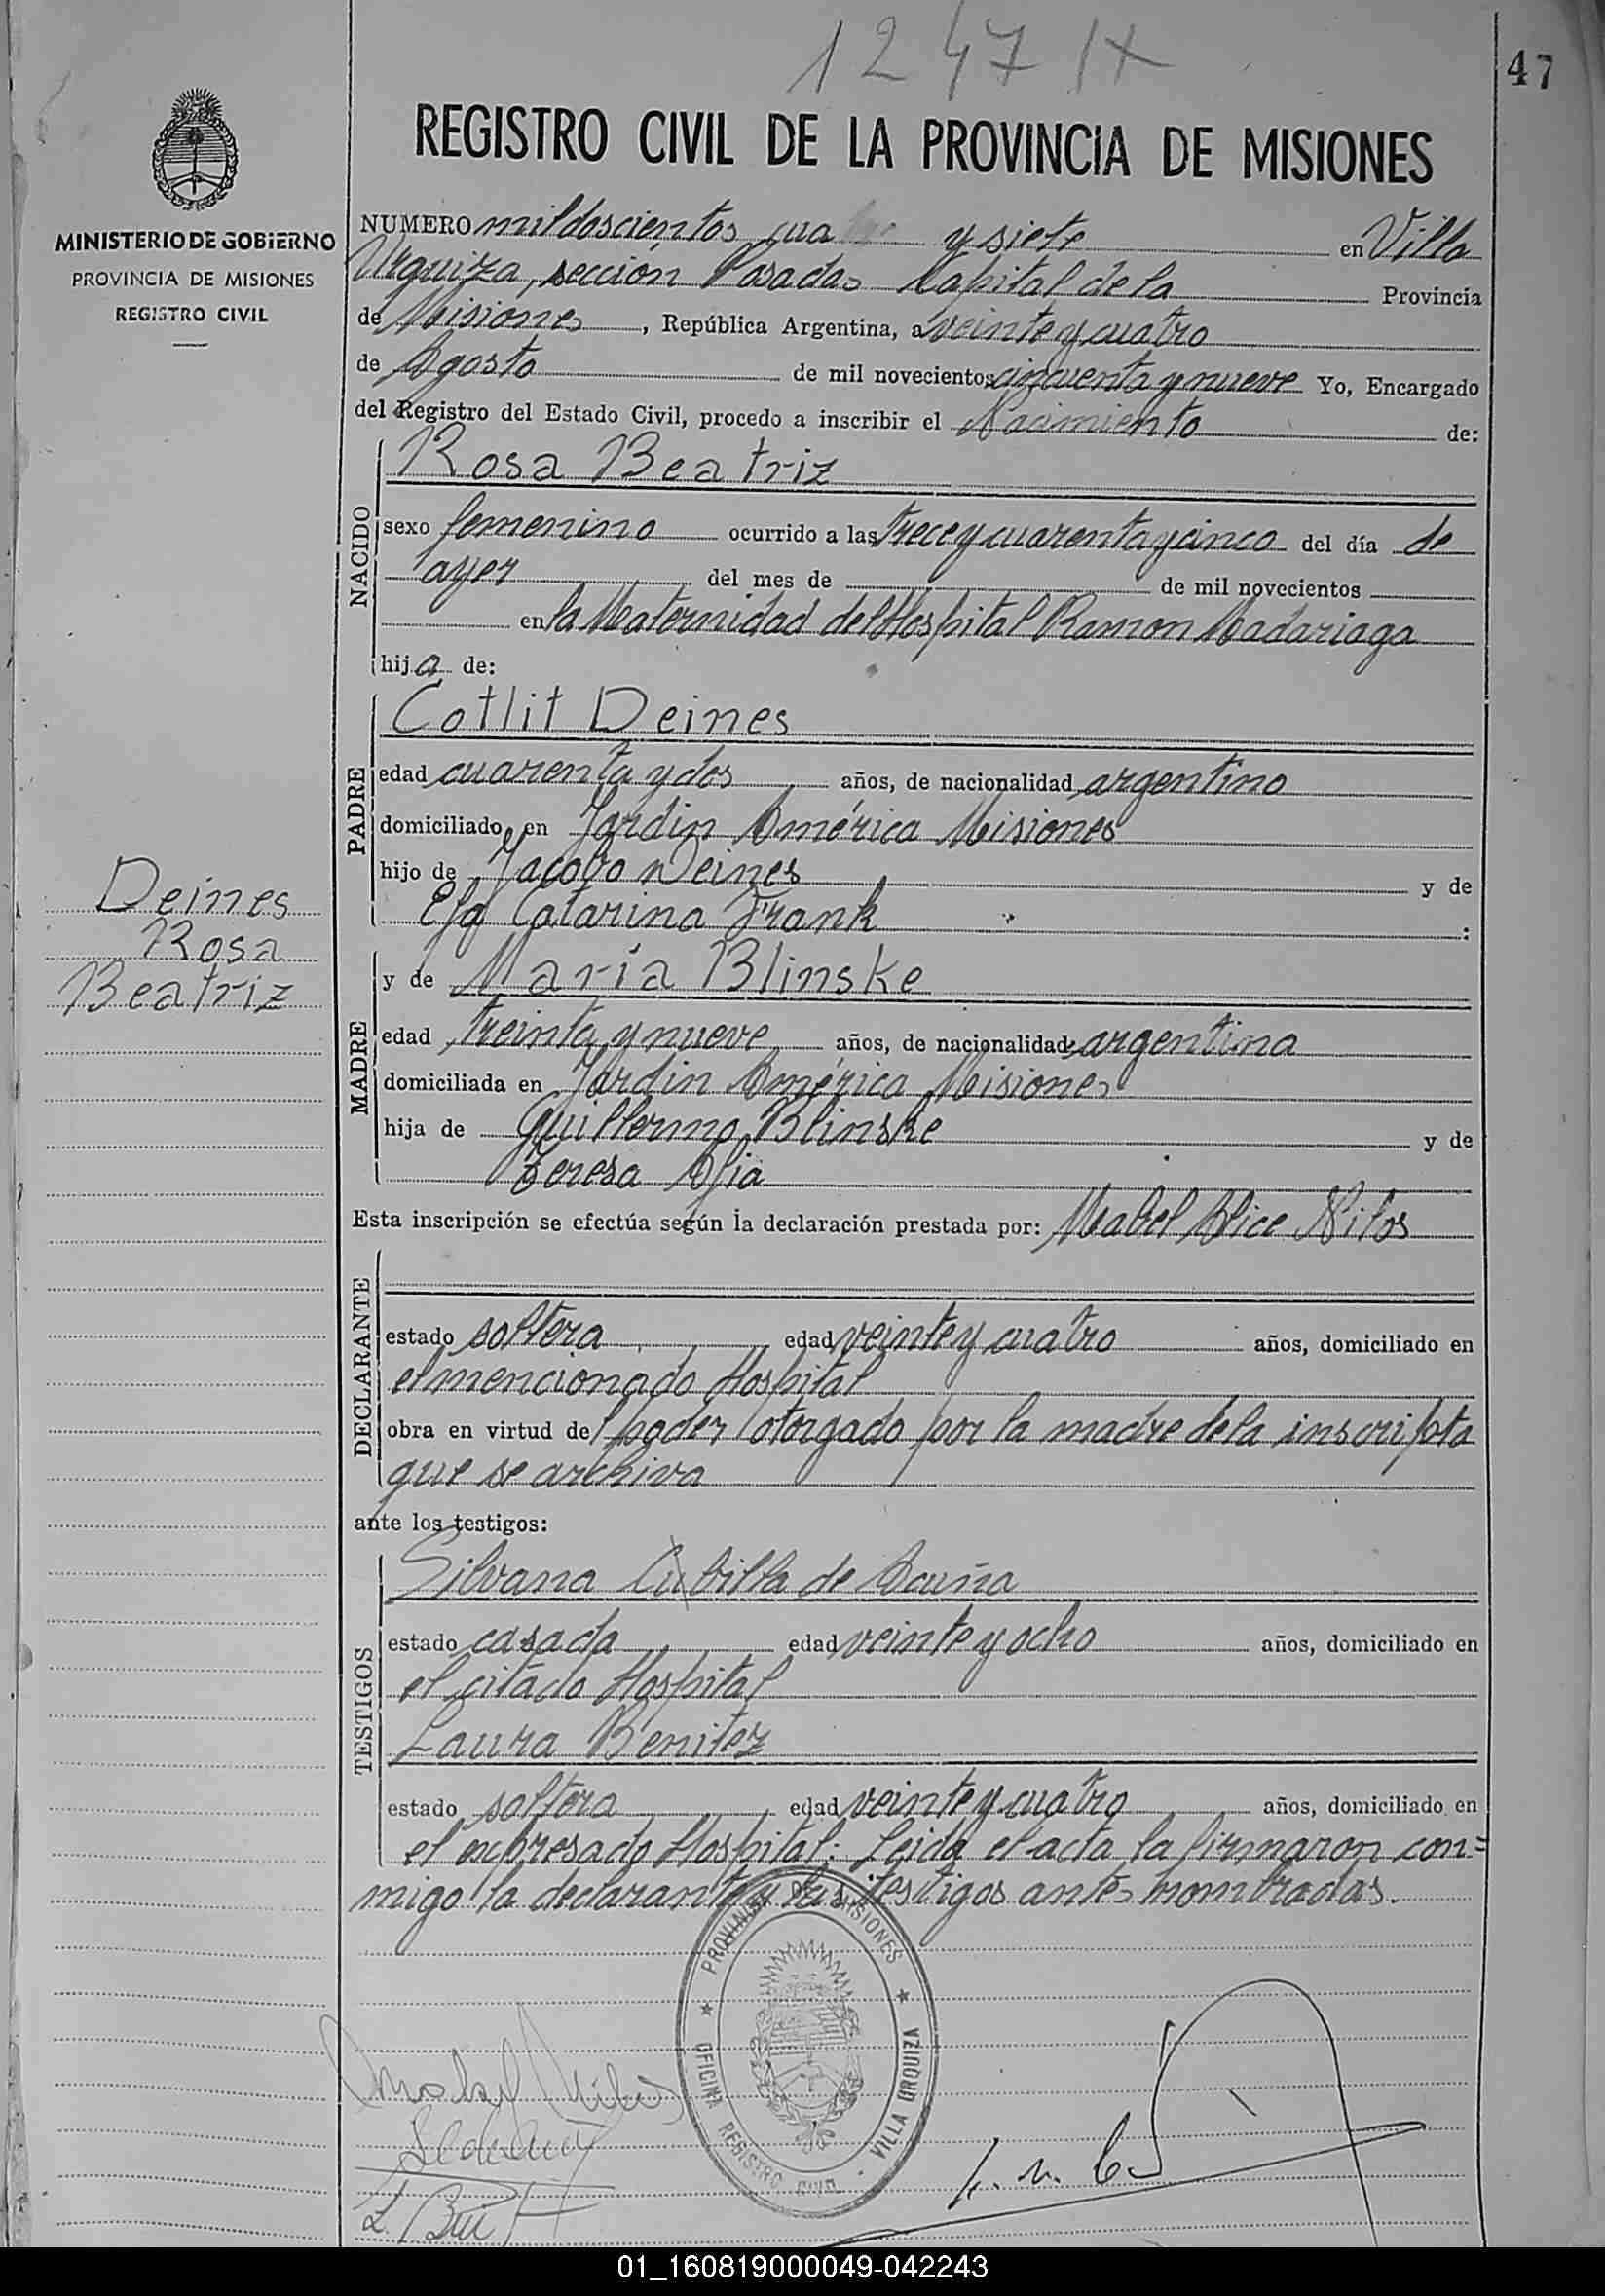 1247 IX
47
REGISTRO CIVIL DE LA PROVINCIA DE MISIONES
MINISTERIO DE GOBIERNO
PROVINCIA DE MISIONES
REGISTRO CIVIL
NUMERO mil doscientos cua y siete en Villa
Urquiza, sección Posadas Capital de la Provincia
de Misiones, República Argentina, a veinte y cuatro
de Agosto de mil novecientos cincuenta y nueve Yo, Encargado
del Registro del Estado Civil, procedo a inscribir el Nacimiento de:
NACIDO
Rosa Beatriz
sexo femenino ocurrido a las trece y cuarenta y cinco del día de
ayer del mes de de mil novecientos
en la Maternidad del Hospital Ramon Madariaga
hija de:
PADRE
Cotlit Deines
edad cuarenta y dos años, de nacionalidad argentino
domiciliado en Jardin América Misiones
hijo de Jacobo Deines y de
Efa Catarina Frank :
Deines
Rosa
Beatriz
MADRE
y de María Blinske
edad treinta y nueve años, de nacionalidad argentina
domiciliada en Jardin América Misiones
hija de Guillermo Blinske y de
Teresa
Esta inscripción se efectúa según la declaración prestada por: Mabel Alice Nilos
DECLARANTE
estado soltera edad veinte y cuatro años, domiciliado en
el mencionado Hospital
obra en virtud del poder otorgado por la madre de la inscripta
que se archiva
ante los testigos:
TESTIGOS
Silvana Cubilla de Acuña
estado casada edad veinte y ocho años, domiciliado en
el citado Hospital
Laura Benitez
estado soltera edad veinte y cuatro años, domiciliado en
el expresado Hospital. Leida el acta la firmaron con=
migo la declarante y las testigos antes nombradas.
PROVINCIA DE MISIONES
OFICINA REGISTRO CIVIL · VILLA URQUIZA
01_160819000049-042243